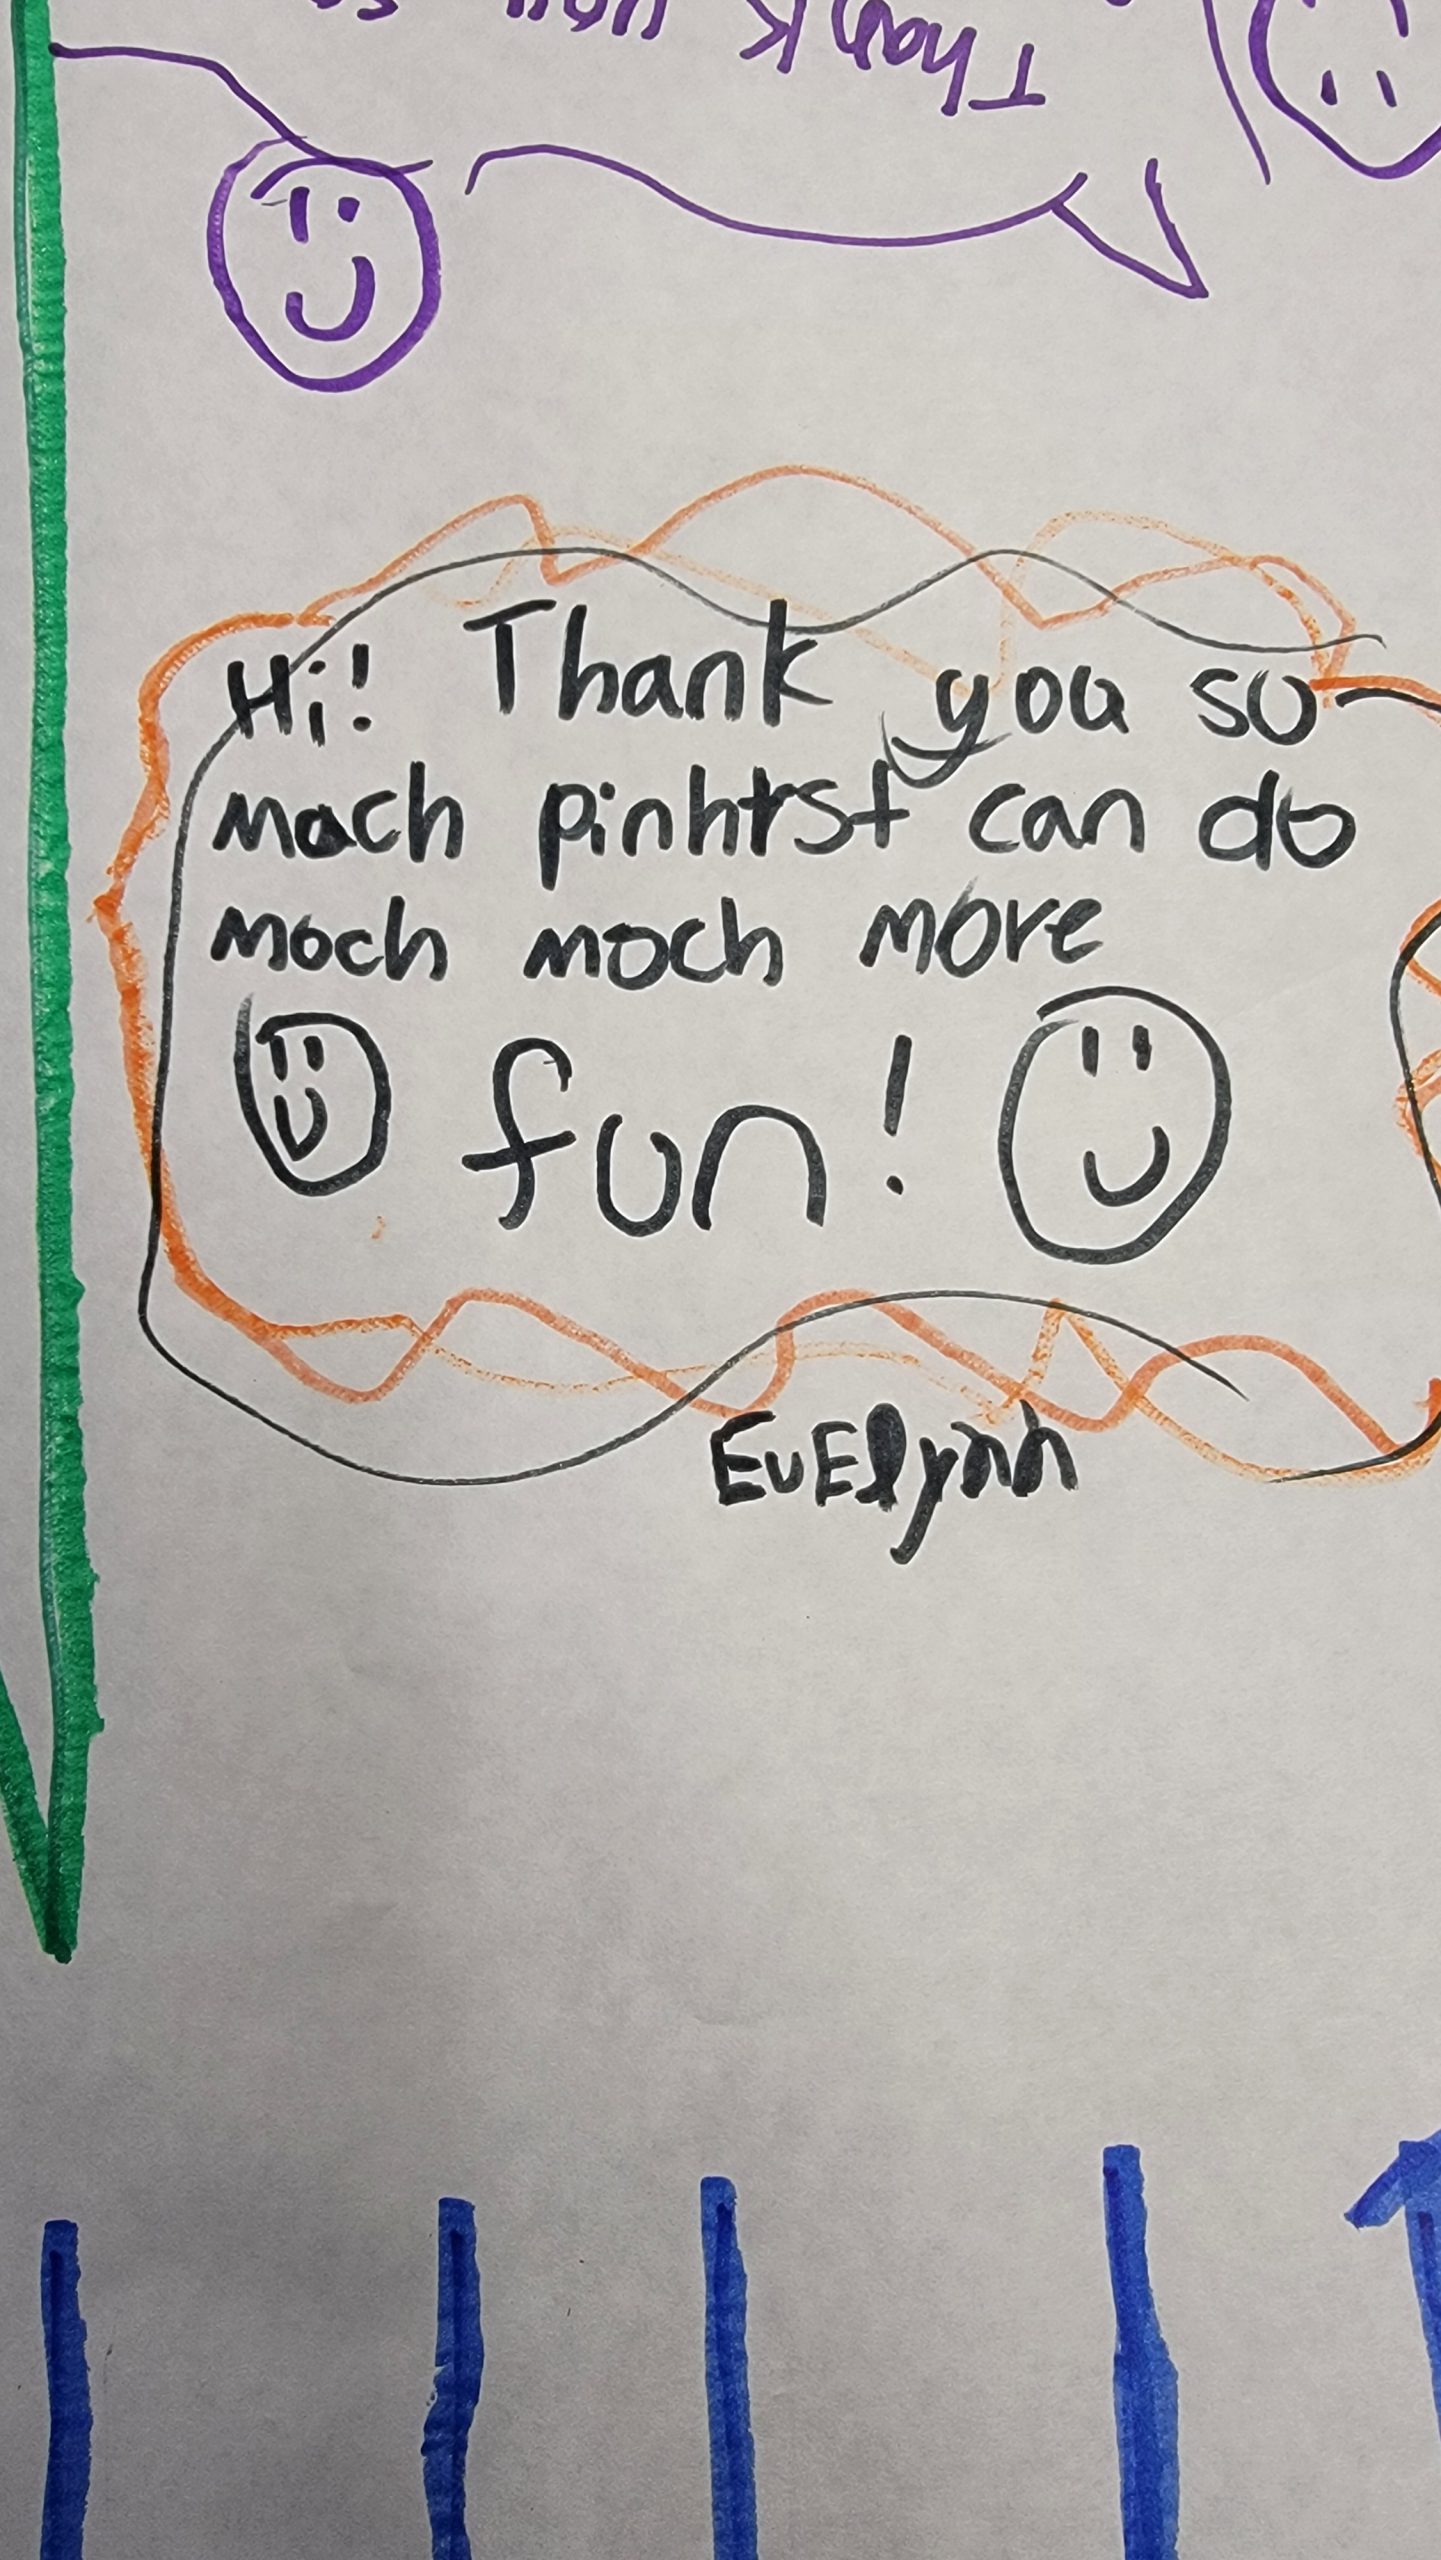 Thank you so
Hi! Thank you so
mach pinhtst can do
moch moch more
fun!
EvElynn